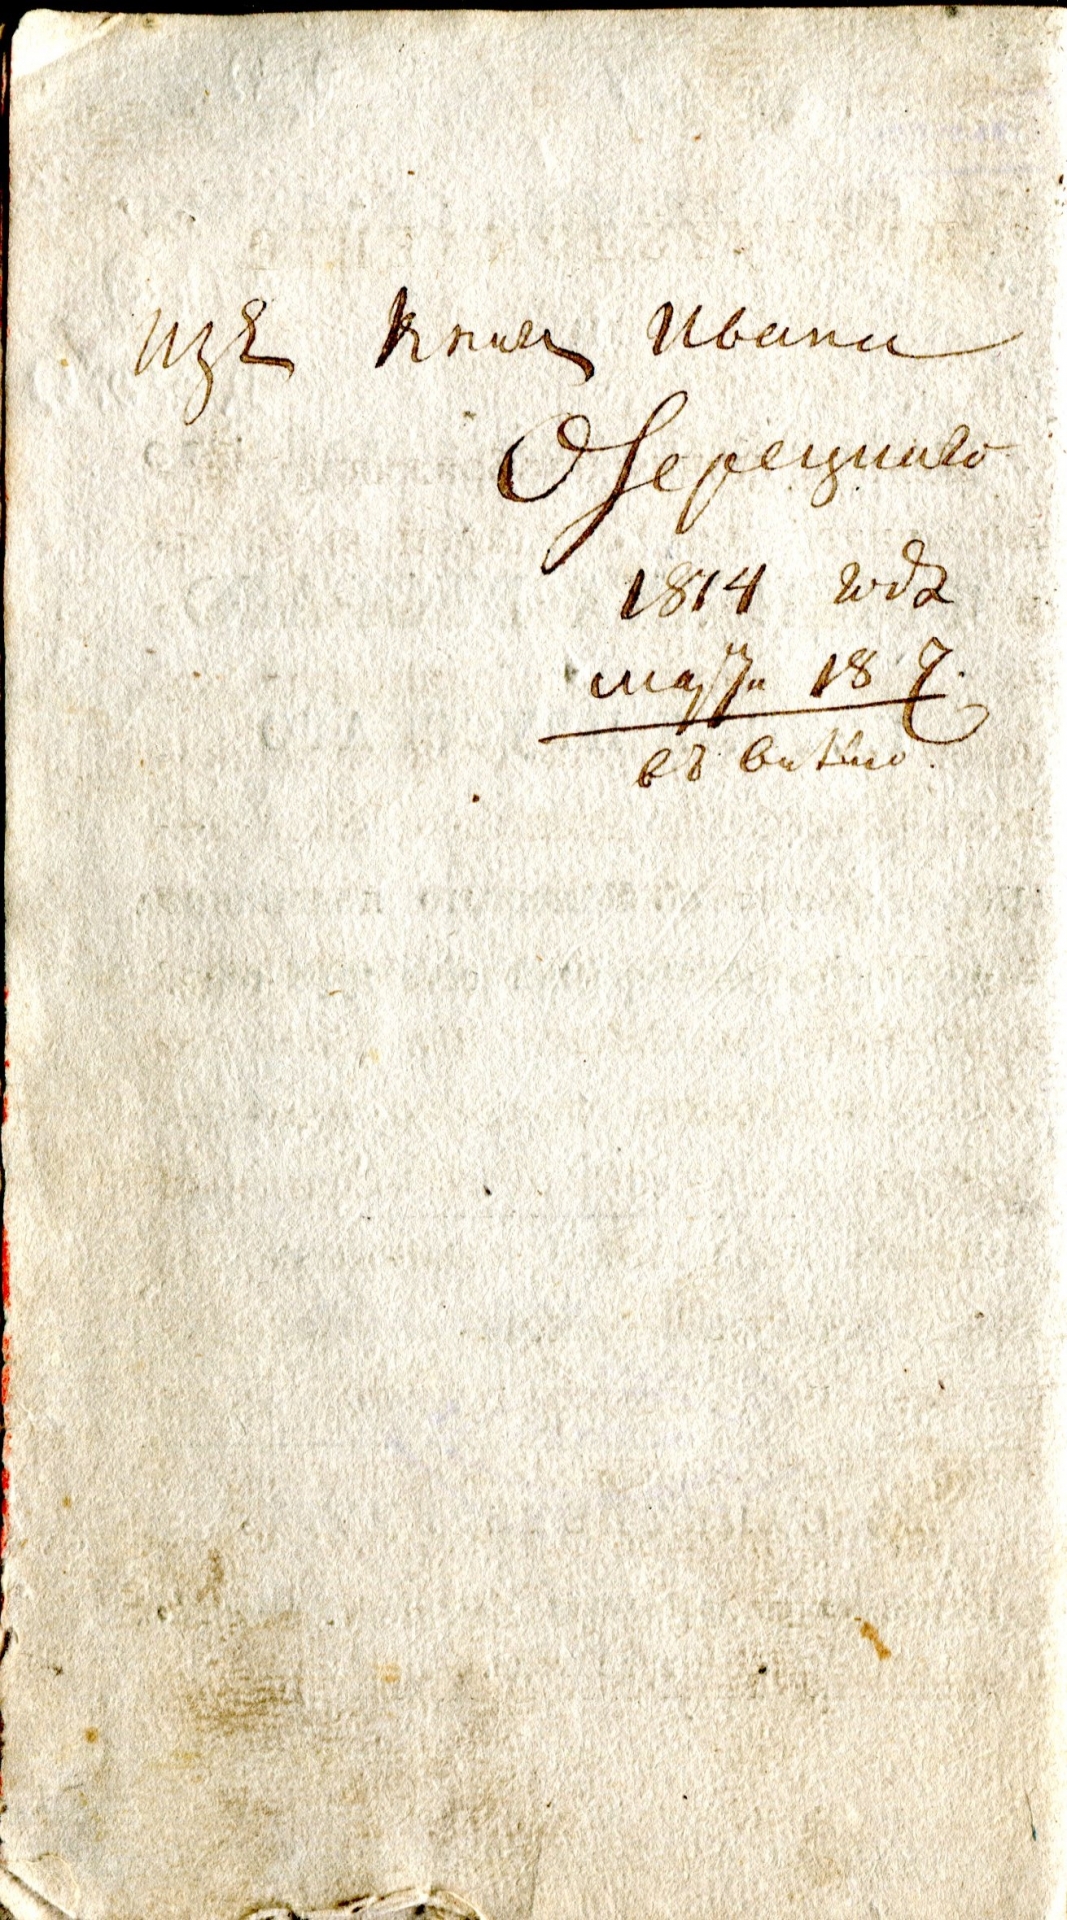 изъ книгъ Ивана
Озерецкаго
1814 года
марта 18
въ